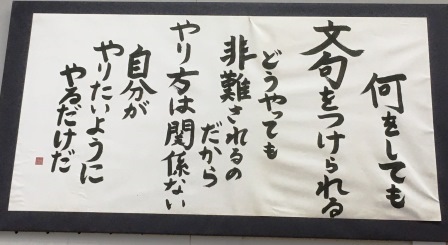 何をしても
文句をつけられる
どうやっても
非難されるの
だから
やり方は関係ない
自分が
やりたいように
やるだけだ